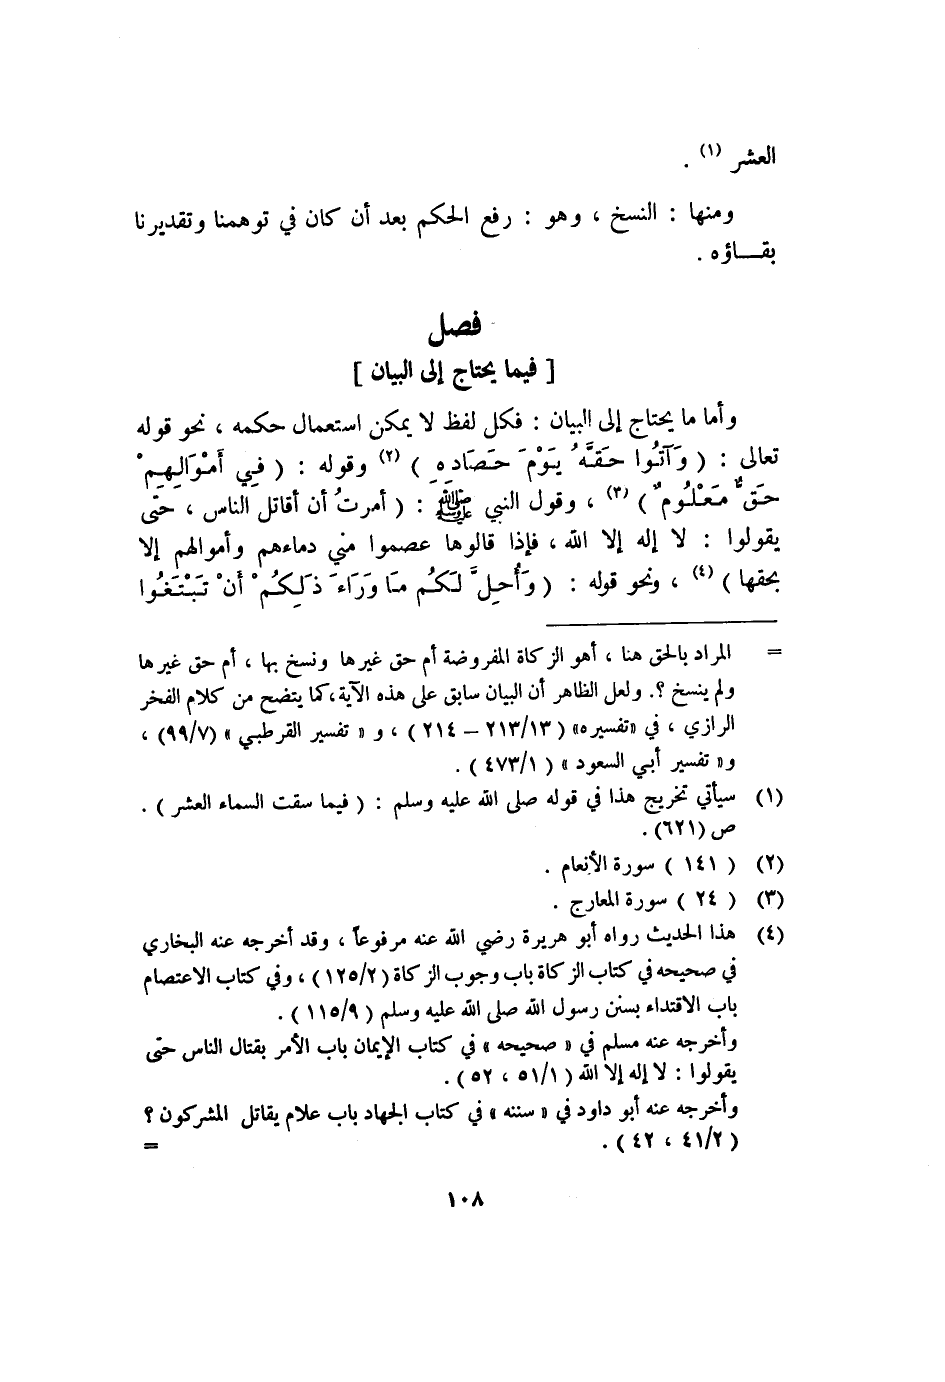 العشر (١) .
ومنها : النسخ ، وهو : رفع الحكم بعد أن كان في توهمنا وتقديرنا
بقـــاؤه .
فصل
[ فيما يحتاج إلى البيان ]
وأما ما يحتاج إلى البيان : فكل لفظ لا يمكن استعمال حكمه ، نحو قوله
تعالى : ( وَآتُوا حَقَّهُ يَوْمَ حَصَادِهِ ) (٢) وقوله : ( فِي أَمْوَالِهِمْ
حَقٌّ مَعْلُومٌ ) (٣) ، وقول النبي ﷺ : ( أمرتُ أن أقاتل الناس ، حتى
يقولوا : لا إله إلا الله ، فإذا قالوها عصموا مني دماءهم وأموالهم إلا
بحقها ) (٤) ، ونحو قوله : ( وَأُحِلَّ لَكُم مَا وَرَاءَ ذَلِكُمْ أَنْ تَبْتَغُوا
= المراد بالحق هنا ، أهو الزكاة المفروضة أم حق غيرها ونسخ بها ، أم حق غيرها
ولم ينسخ ؟. ولعل الظاهر أن البيان سابق على هذه الآية،كما يتضح من كلام الفخر
الرازي ، في «تفسيره» ( ٢١٣/١٣ – ٢١٤ ) ، و « تفسير القرطبي » (٩٩/٧) ،
و« تفسير أبي السعود » ( ٤٧٣/١ ) .
(١) سيأتي تخريج هذا في قوله صلى الله عليه وسلم : ( فيما سقت السماء العشر ) .
ص (٦٢١) .
(٢) ( ١٤١ ) سورة الأنعام .
(٣) ( ٢٤ ) سورة المعارج .
(٤) هذا الحديث رواه أبو هريرة رضي الله عنه مرفوعاً ، وقد أخرجه عنه البخاري
في صحيحه في كتاب الزكاة باب وجوب الزكاة ( ١٢٥/٢ ) ، وفي كتاب الاعتصام
باب الاقتداء بسنن رسول الله صلى الله عليه وسلم ( ١١٥/٩ ) .
وأخرجه عنه مسلم في « صحيحه » في كتاب الإيمان باب الأمر بقتال الناس حتى
يقولوا : لا إله إلا الله ( ٥١/١ ، ٥٢ ) .
وأخرجه عنه أبو داود في « سننه » في كتاب الجهاد باب علام يقاتل المشركون ؟
( ٤١/٢ ، ٤٢ ) . =
١٠٨